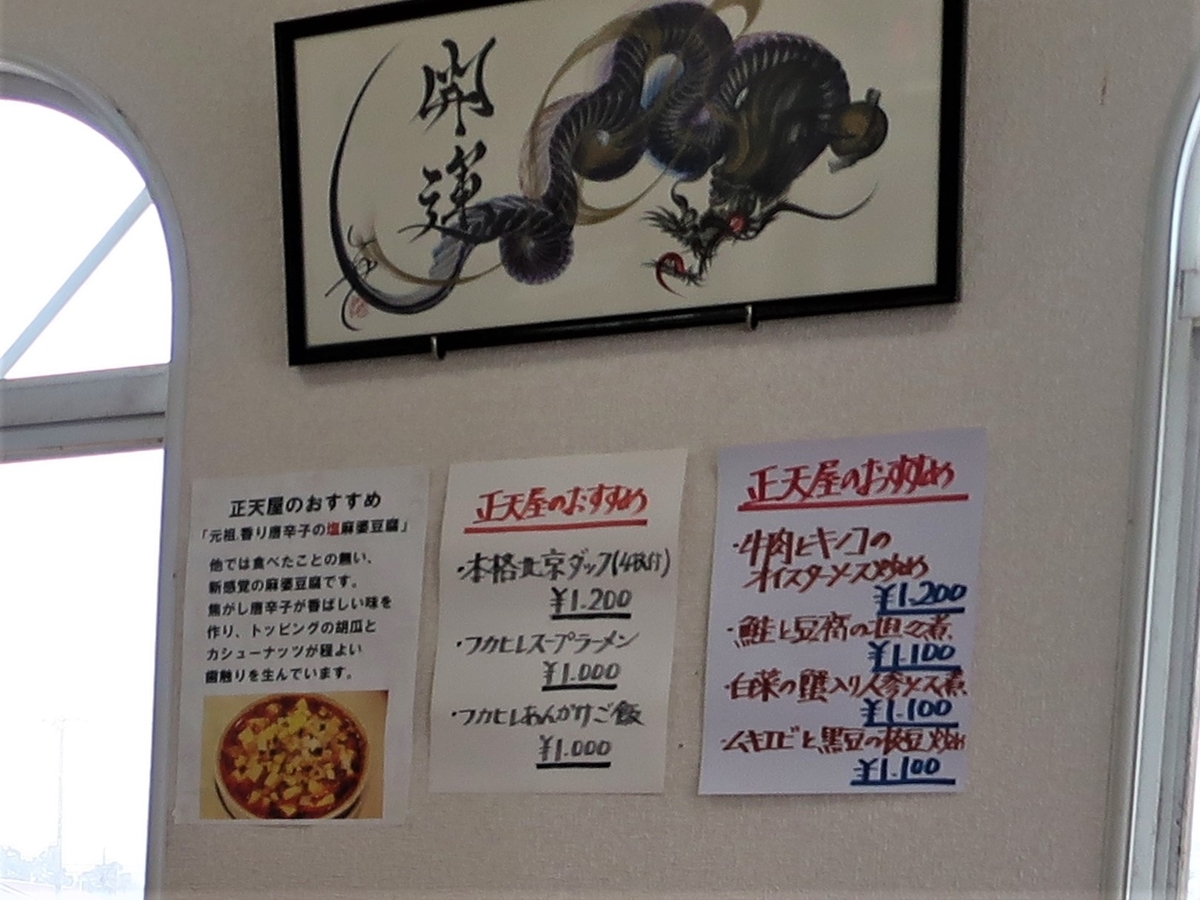 開
運
正天屋のおすすめ
「元祖.香り唐辛子の塩麻婆豆腐」
他では食べたことの無い、
新感覚の麻婆豆腐です。
焦がし唐辛子が香ばしい味を
作り、トッピングの胡瓜と
カシューナッツが程よい
歯触りを生んでいます。
正天屋のおすすめ
・本格北京ダック(4枚付)
¥1.200
・フカヒレスープラーメン
¥1.000
・フカヒレあんかけご飯
¥1.000
正天屋のおすすめ
・牛肉とキノコの
オイスターソース炒め
¥1.200
・鮭と豆腐の旦々煮
¥1.100
・白菜の蟹入り人参ソース煮
¥1.100
・ムキエビと黒豆の枝豆炒め
¥1.100